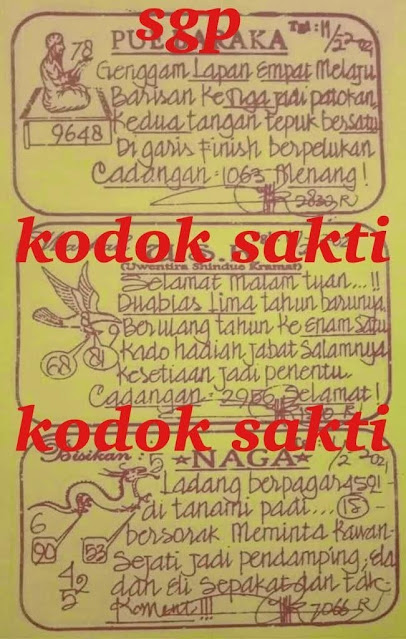 sgp
PUE BARAKA
Tgl : 11/2-202,
78
Genggam Lapan Empat Melaju
Barisan Ketiga jadi patokan,
Kedua tangan tepuk bersatu
Di garis Finish berpelukan
9648
Cadangan : 1063 Menang !
2832 R
kodok sakti
(Uwentira Shindue Kramat)
Selamat Malam tuan...!!
Duablas Lima tahun barunya
Berulang tahun ke Enam Satu
Kado hadiah jabat Salamnya
68
kesetiaan jadi penentu.
Cadangan : 2956 Selamat !
R
kodok sakti
Bisikan :
5
★NAGA★
/2 202,
Ladang berpagar 4591-
di tanami padi... (15)-
6
bersorak Meminta Kawan-
90
53
Sejati jadi pendamping, Ela
42
dan Eli Sepakat dan Tak-
52
Koment !!!
7066 R